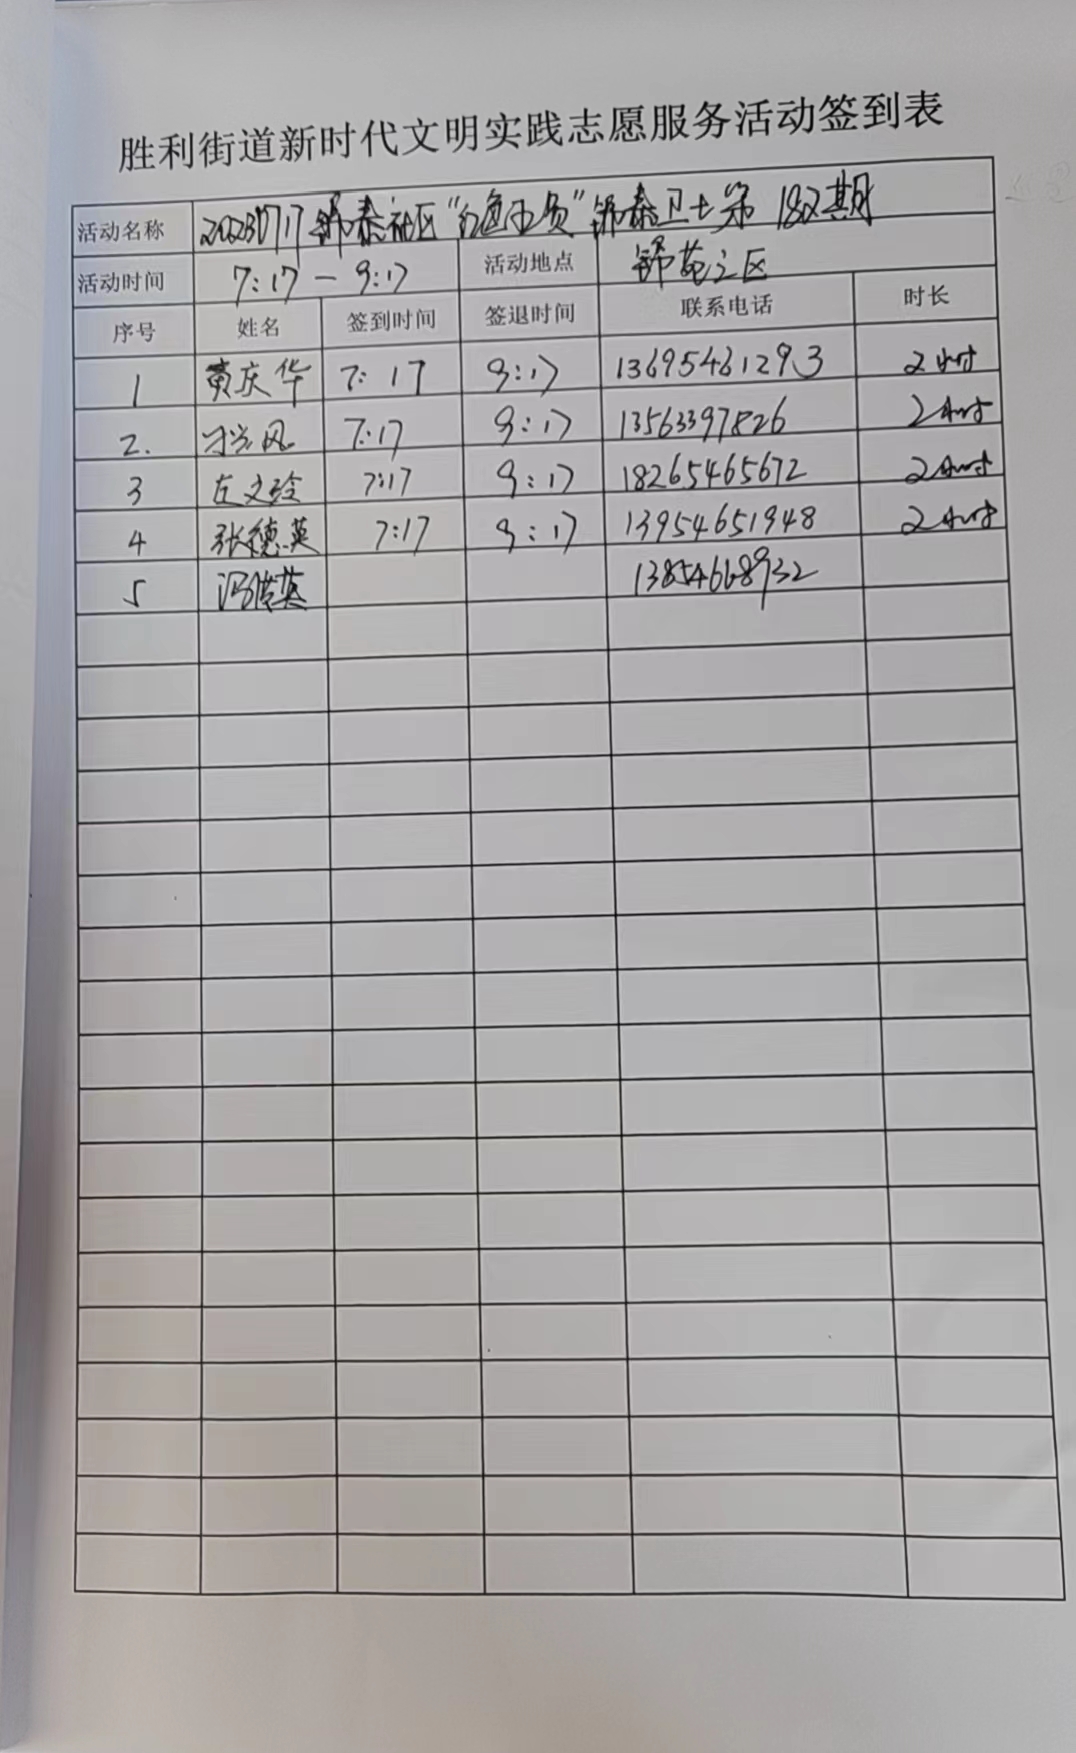 胜利街道新时代文明实践志愿服务活动签到表
活动名称 20230717 锦泰社区"红色 员"锦泰卫士第 182期
活动时间 7:17-9:17 活动地点 锦苑三区
序号 姓名 签到时间 签退时间 联系电话 时长
1 黄庆华 7:17 9:17 13695461293 2小时
2. 7:17 9:17 13563397826 2小时
3 左文玲 7:17 9:17 18265465672 2小时
4 张德英 7:17 9:17 13954651948 2小时
5 冯 英 13854668932